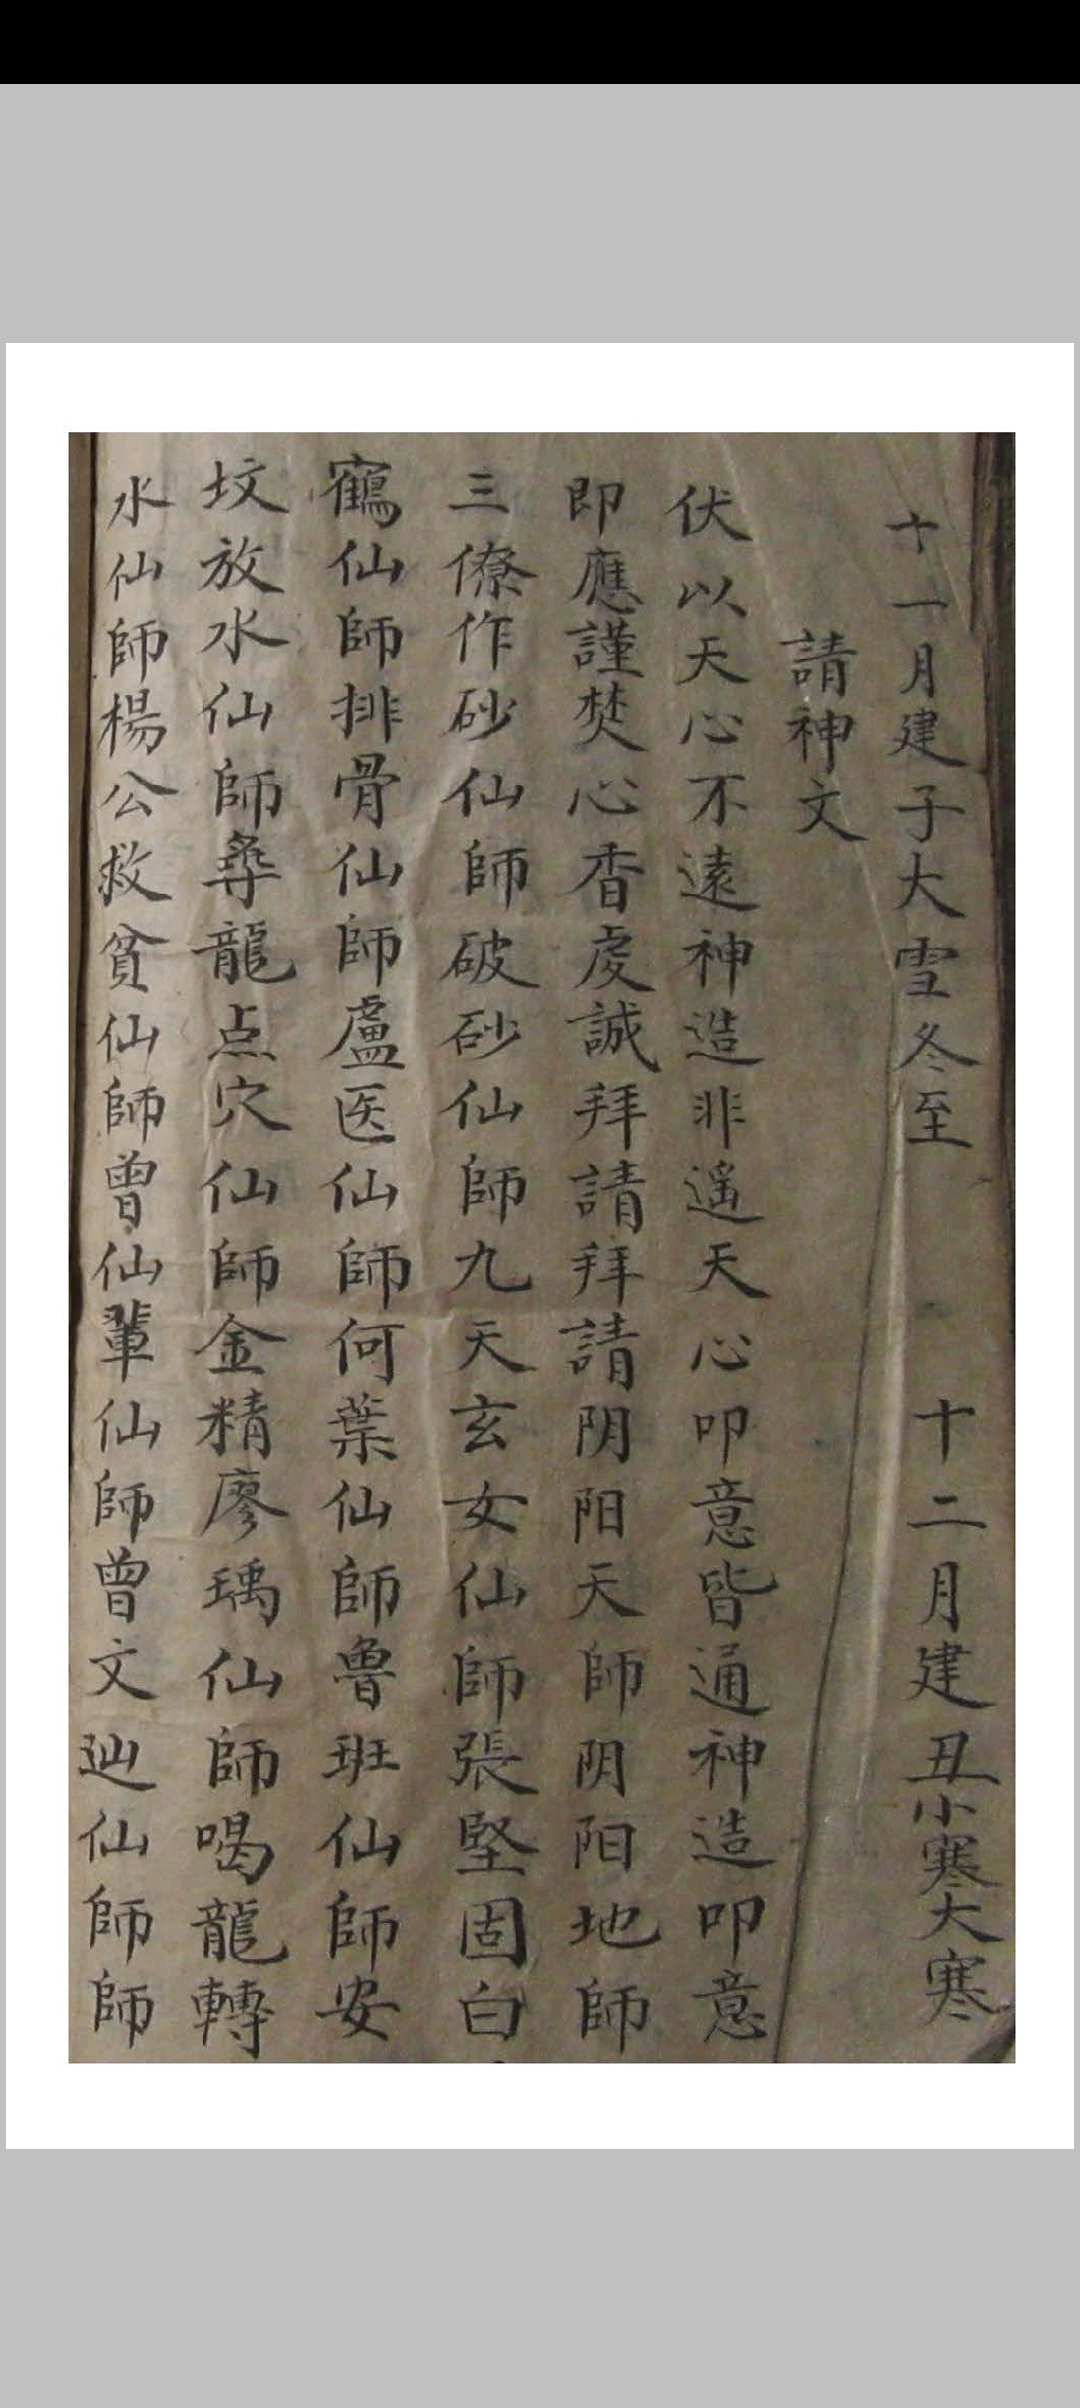 十一月建子大雪冬至 十二月建丑小寒大寒
請神文
伏以天心不遠神造非遥天心叩意皆通神造叩意
即應謹焚心香虔誠拜請拜請阴阳天師阴阳地師
三僚作砂仙師破砂仙師九天玄女仙師張堅固白
鶴仙師排骨仙師盧医仙師何葉仙師魯班仙師安
坟放水仙師尋龍点穴仙師金精廖瑀仙師喝龍轉
水仙師楊公救貧仙師曾仙輩仙師曾文辿仙師師